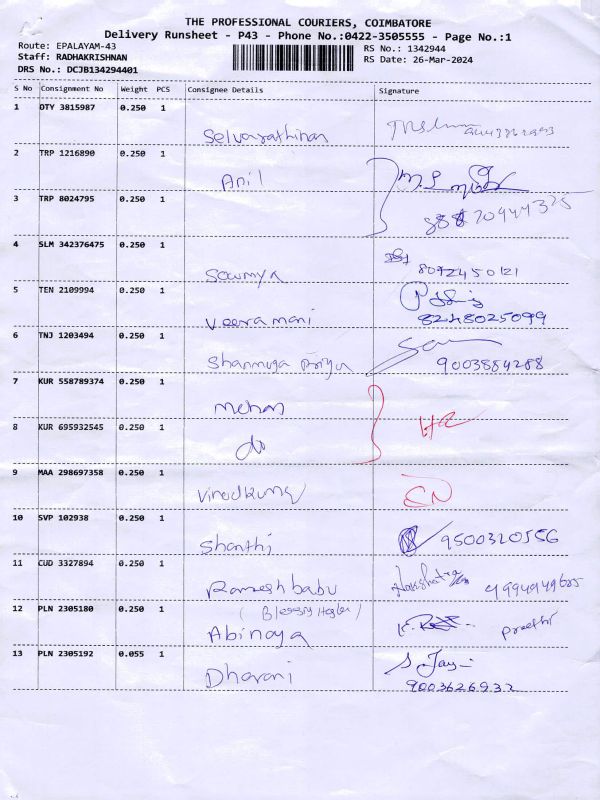 THE PROFESSIONAL COURIERS, COIMBATORE
Delivery Runsheet - P43 - Phone No.:0422-3505555 - Page No.:1
Route: EPALAYAM-43 RS No.: 1342944
Staff: RADHAKRISHNAN RS Date: 26-Mar-2024
DRS No.: DCJB134294401
S No Consignment No Weight PCS Consignee Details Signature
1 DTY 3815987 0.250 1
Selvarathinan
2 TRP 1216890 0.250 1
Anil
3 TRP 8024795 0.250 1
4 SLM 342376475 0.250 1
Sowmya
5 TEN 2109994 0.250 1
Veeramani 8248025099
6 TNJ 1203494 0.250 1
Shanmuga Priya 9003884288
7 KUR 558789374 0.250 1
Mohan
8 KUR 695932545 0.250 1
do
9 MAA 298697358 0.250 1
Vinodkumar
10 SVP 102938 0.250 1
Shanthi 9500320556
11 CUD 3327894 0.250 1
Rameshbabu
12 PLN 2305180 0.250 1
Abinaya Preethi
13 PLN 2305192 0.055 1
Dharani 9003626932